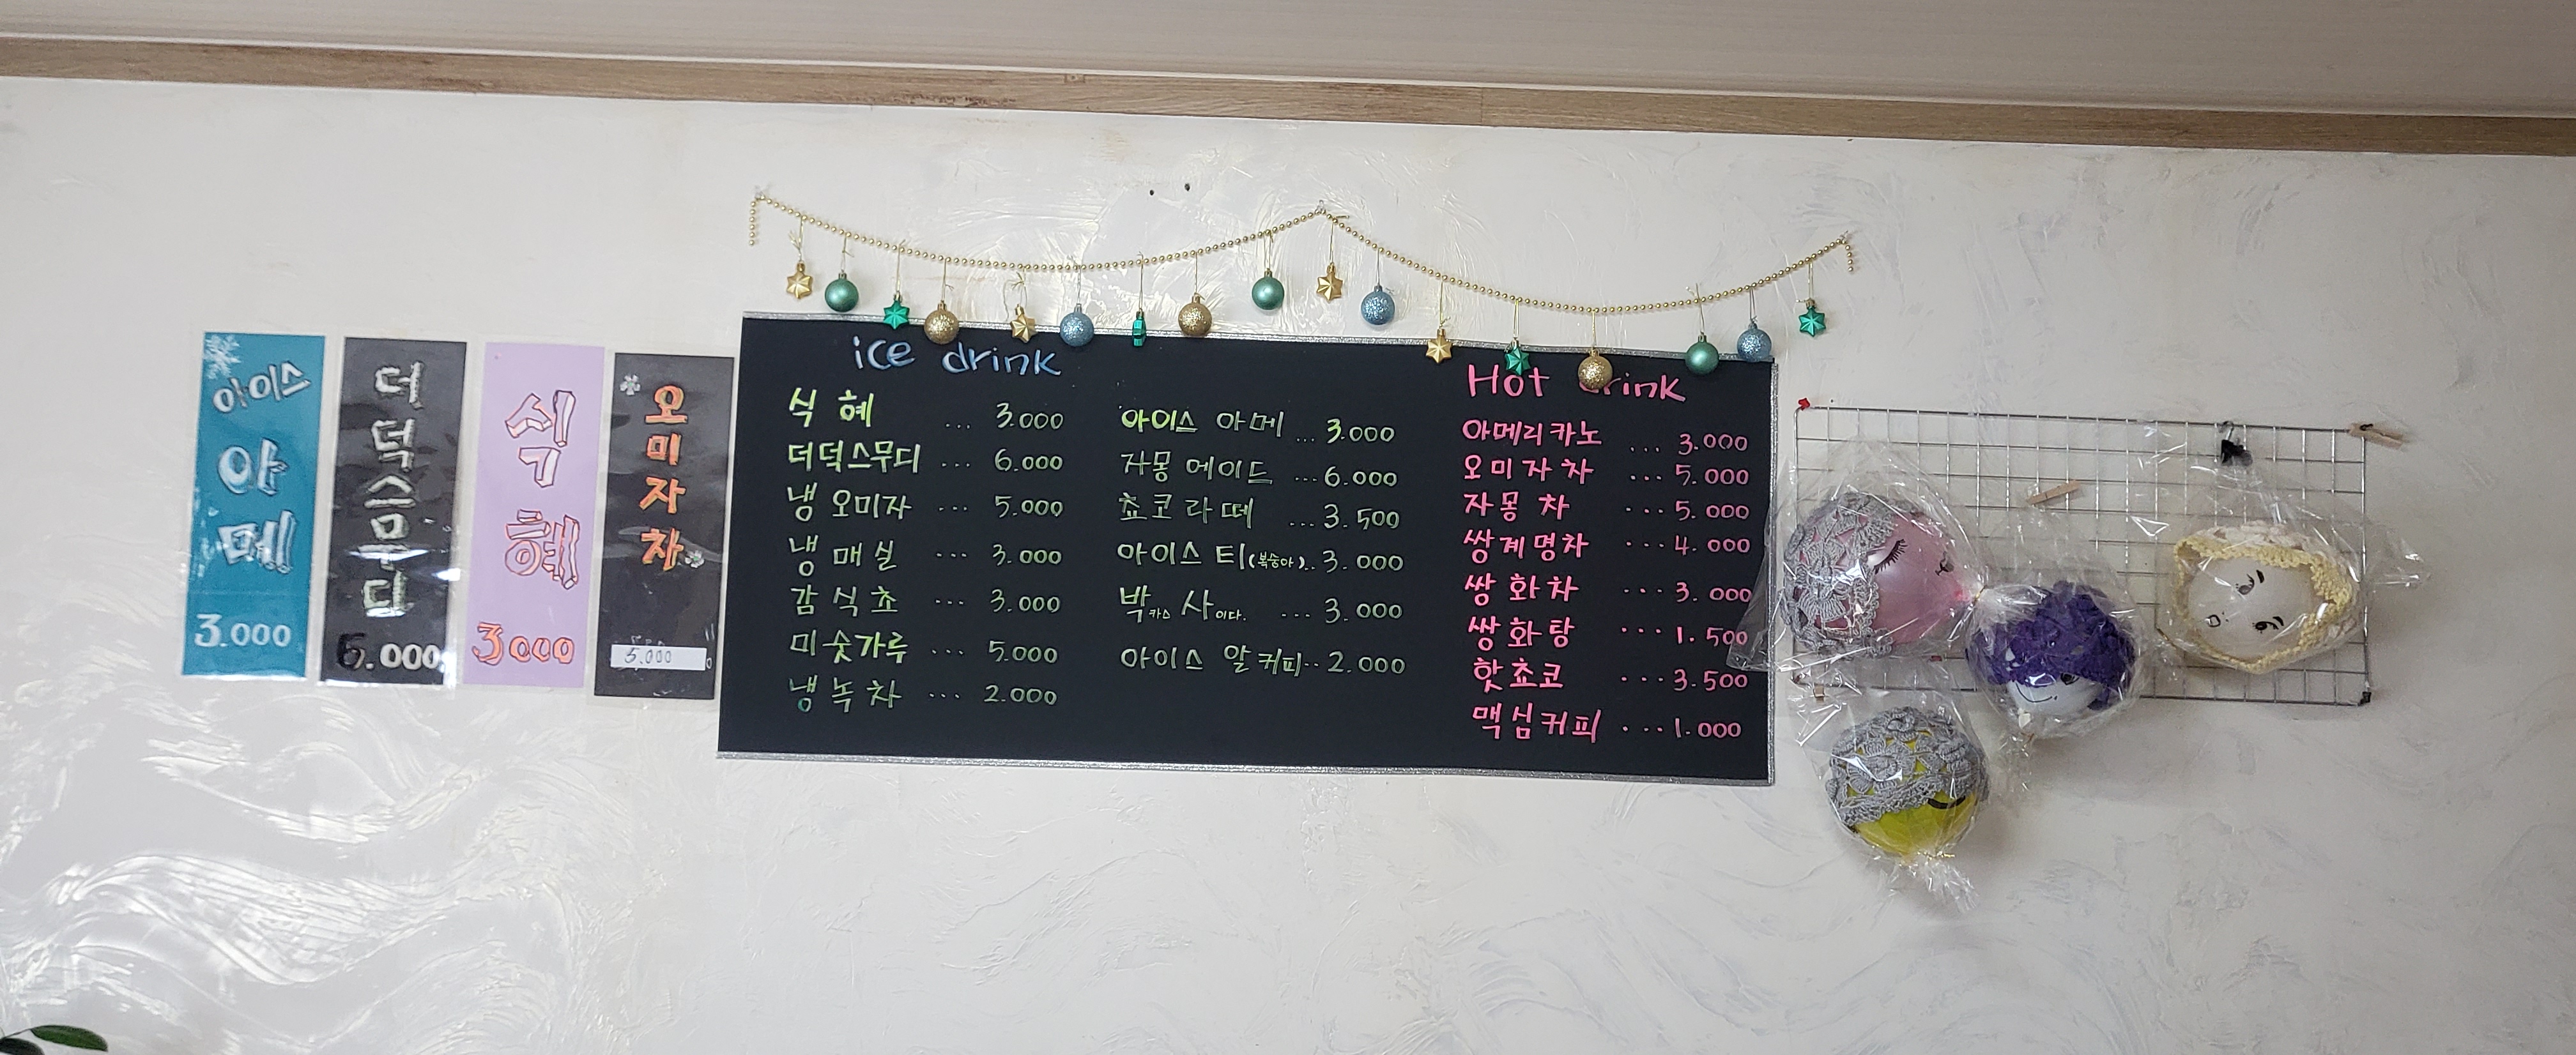 아이스
아
메
3.000
더덕스무디
6.000
식혜
3000
오미자차
5.000
ice drink
식혜 ... 3.000
더덕스무디 ... 6.000
냉오미자 ... 5.000
냉매실 ... 3.000
감식쵸 ... 3.000
미숫가루 ... 5.000
냉녹차 ... 2.000
아이스 아메 ... 3.000
자몽에이드 ... 6.000
쵸코라떼 ... 3.500
아이스티(복숭아)..3.000
박카스 사이다. ... 3.000
아이스 알커피..2.000
Hot drink
아메리카노 ... 3.000
오미자차 ... 5.000
자몽차 ... 5.000
쌍계명차 ... 4.000
쌍화차 ... 3.000
쌍화탕 ... 1.500
핫쵸코 ... 3.500
맥심커피 ... 1.000